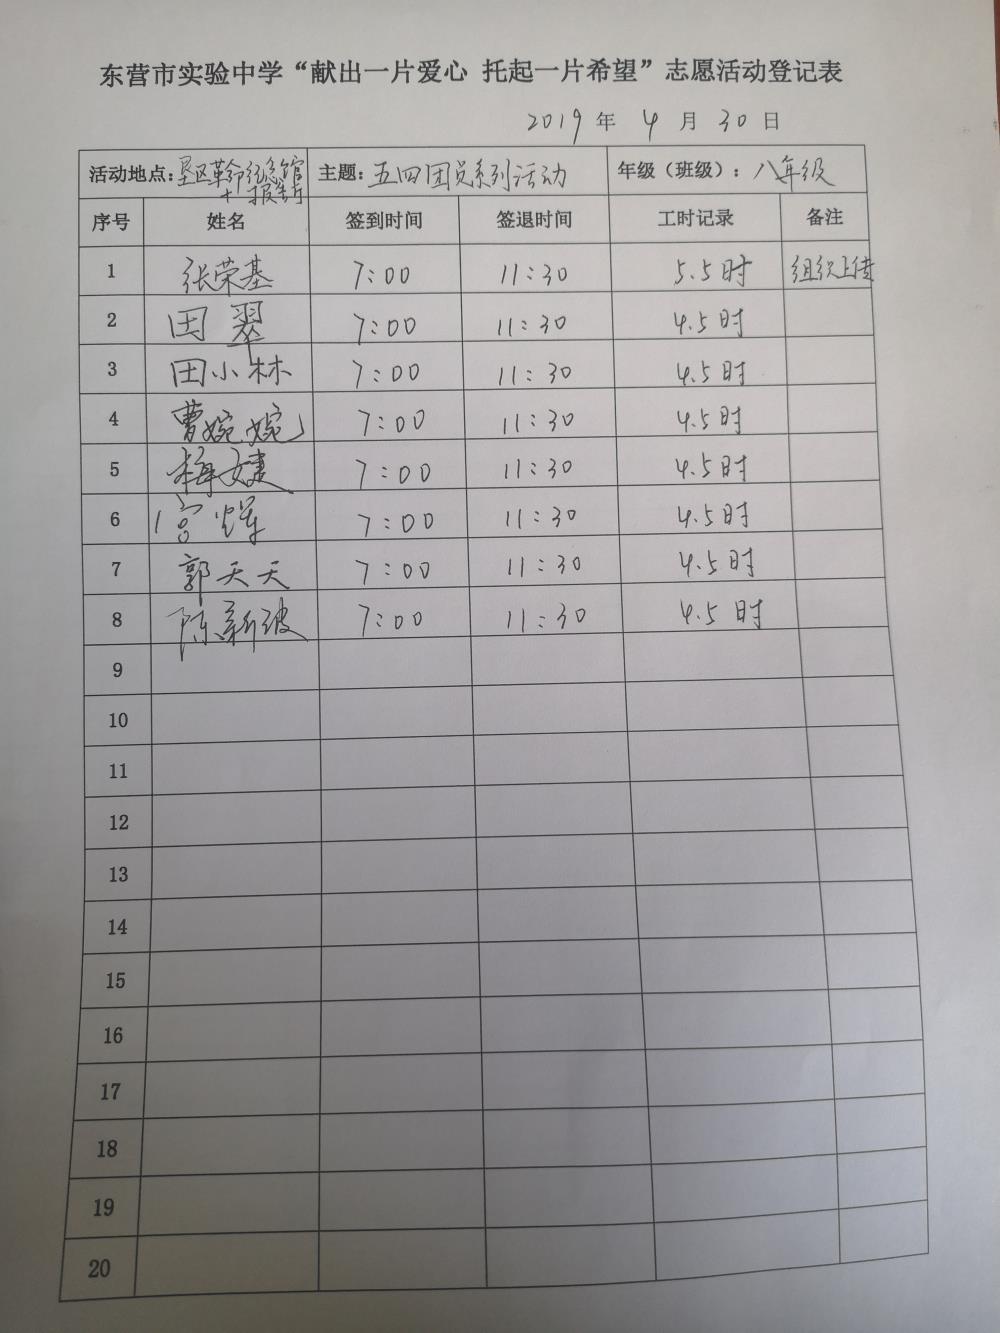 东营市实验中学“献出一片爱心 托起一片希望”志愿活动登记表
2019 年 4 月 30 日
活动地点：垦区革命纪念馆 主题：五四团员系列活动 年级（班级）：八年级
+报告厅
序号 姓名 签到时间 签退时间 工时记录 备注
1 张荣基 7:00 11:30 5.5时 组织上传
2 田翠 7:00 11:30 4.5时
3 田小林 7:00 11:30 4.5时
4 曹婉婉 7:00 11:30 4.5时
5 梅婕 7:00 11:30 4.5时
6 宫辉 7:00 11:30 4.5时
7 郭天天 7:00 11:30 4.5时
8 陈新波 7:00 11:30 4.5时
9
10
11
12
13
14
15
16
17
18
19
20